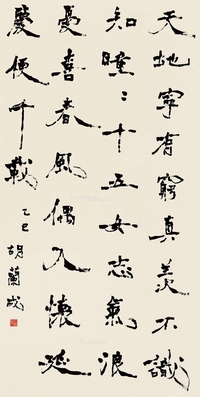 天地寧有窮真羨不識
知曈〻十五女氣浪
憂喜春風偶入懷延
慶便千載
乙巳 胡蘭成